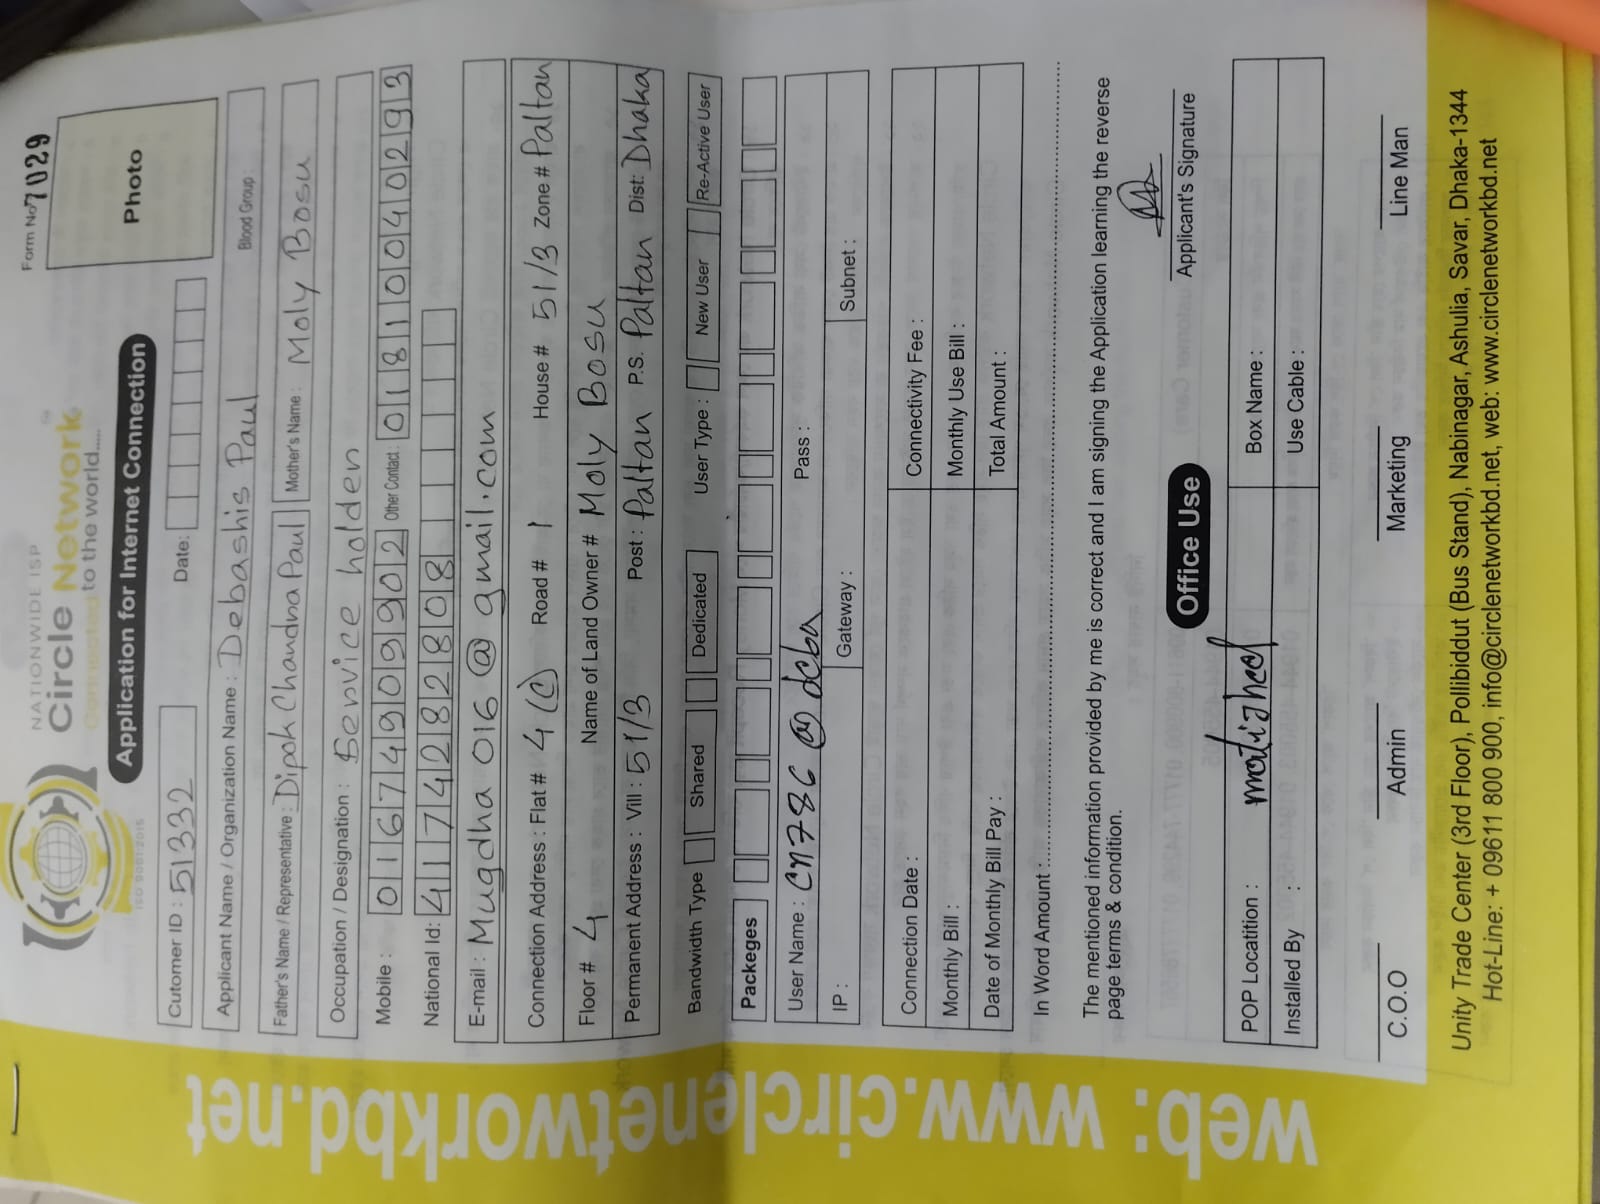 Form No 7029
NATIONWIDE ISP
Circle Network
Connected to the world.....
ISO 9001:2015
Application for Internet Connection
Photo
Cutomer ID : 51332 Date:
Applicant Name / Organization Name : Debashis Paul Blood Group :
Father's Name / Representative : Dipok Chandra Paul Mother's Name : Moly Bosu
Occupation / Designation : Service holder
Mobile : 01674909902 Other Contact : 01811004040293
National Id: 4174282808
E-mail : Mugdha016@gmail.com
Connection Address : Flat # 4(C) Road # 1 House # 51/3 Zone # Paltan
Floor # 4 Name of Land Owner # Moly Bosu
Permanent Address : Vill : 51/3 Post : Paltan P.S. Paltan Dist: Dhaka
Bandwidth Type Shared Dedicated User Type : New User Re-Active User
Packeges
User Name : CN786@deba Pass :
IP : Gateway : Subnet :
Connection Date : Connectivity Fee :
Monthly Bill : Monthly Use Bill :
Date of Monthly Bill Pay : Total Amount :
In Word Amount :
The mentioned information provided by me is correct and I am signing the Application learning the reverse
page terms & condition.
Applicant's Signature
Office Use
POP Locatition : motijheel Box Name :
Installed By : Use Cable :
C.O.O Admin Marketing Line Man
Unity Trade Center (3rd Floor), Pollibiddut (Bus Stand), Nabinagar, Ashulia, Savar, Dhaka-1344
Hot-Line: + 09611 800 900, info@circlenetworkbd.net, web: www.circlenetworkbd.net
web: www.circlenetworkbd.net